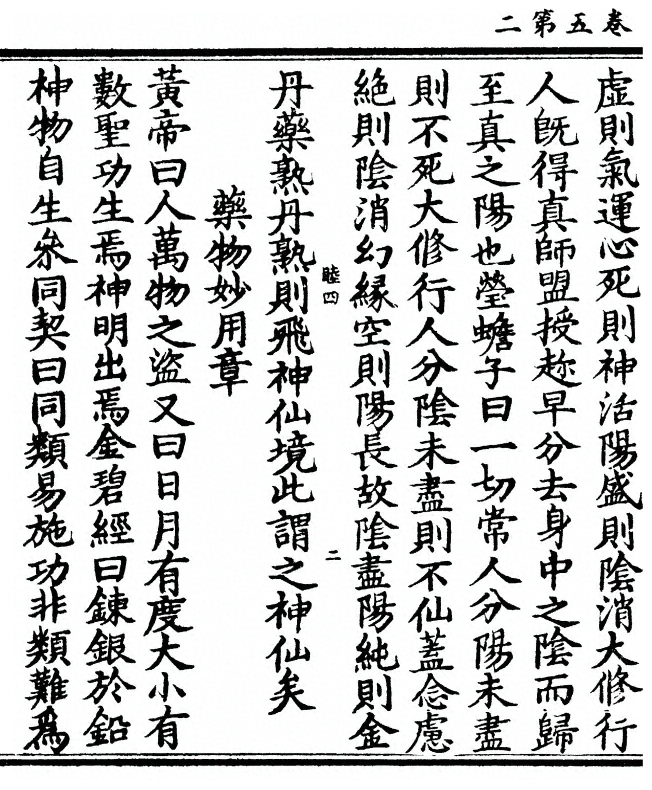 卷五第二
虛則氣運心死則神活陽盛則陰消大修行
人旣得真師盟授趂早分去身中之陰而歸
至真之陽也瑩蟾子曰一切常人分陽未盡
則不死大修行人分陰未盡則不仙蓋念慮
絕則陰消幻緣空則陽長故陰盡陽純則金
睦四
二
丹藥熟丹熟則飛神仙境此謂之神仙矣
藥物妙用章
黃帝曰人萬物之盜又曰日月有度大小有
數聖功生焉神明出焉金碧經曰鍊銀於鉛
神物自生叅同契曰同類易施功非類難爲